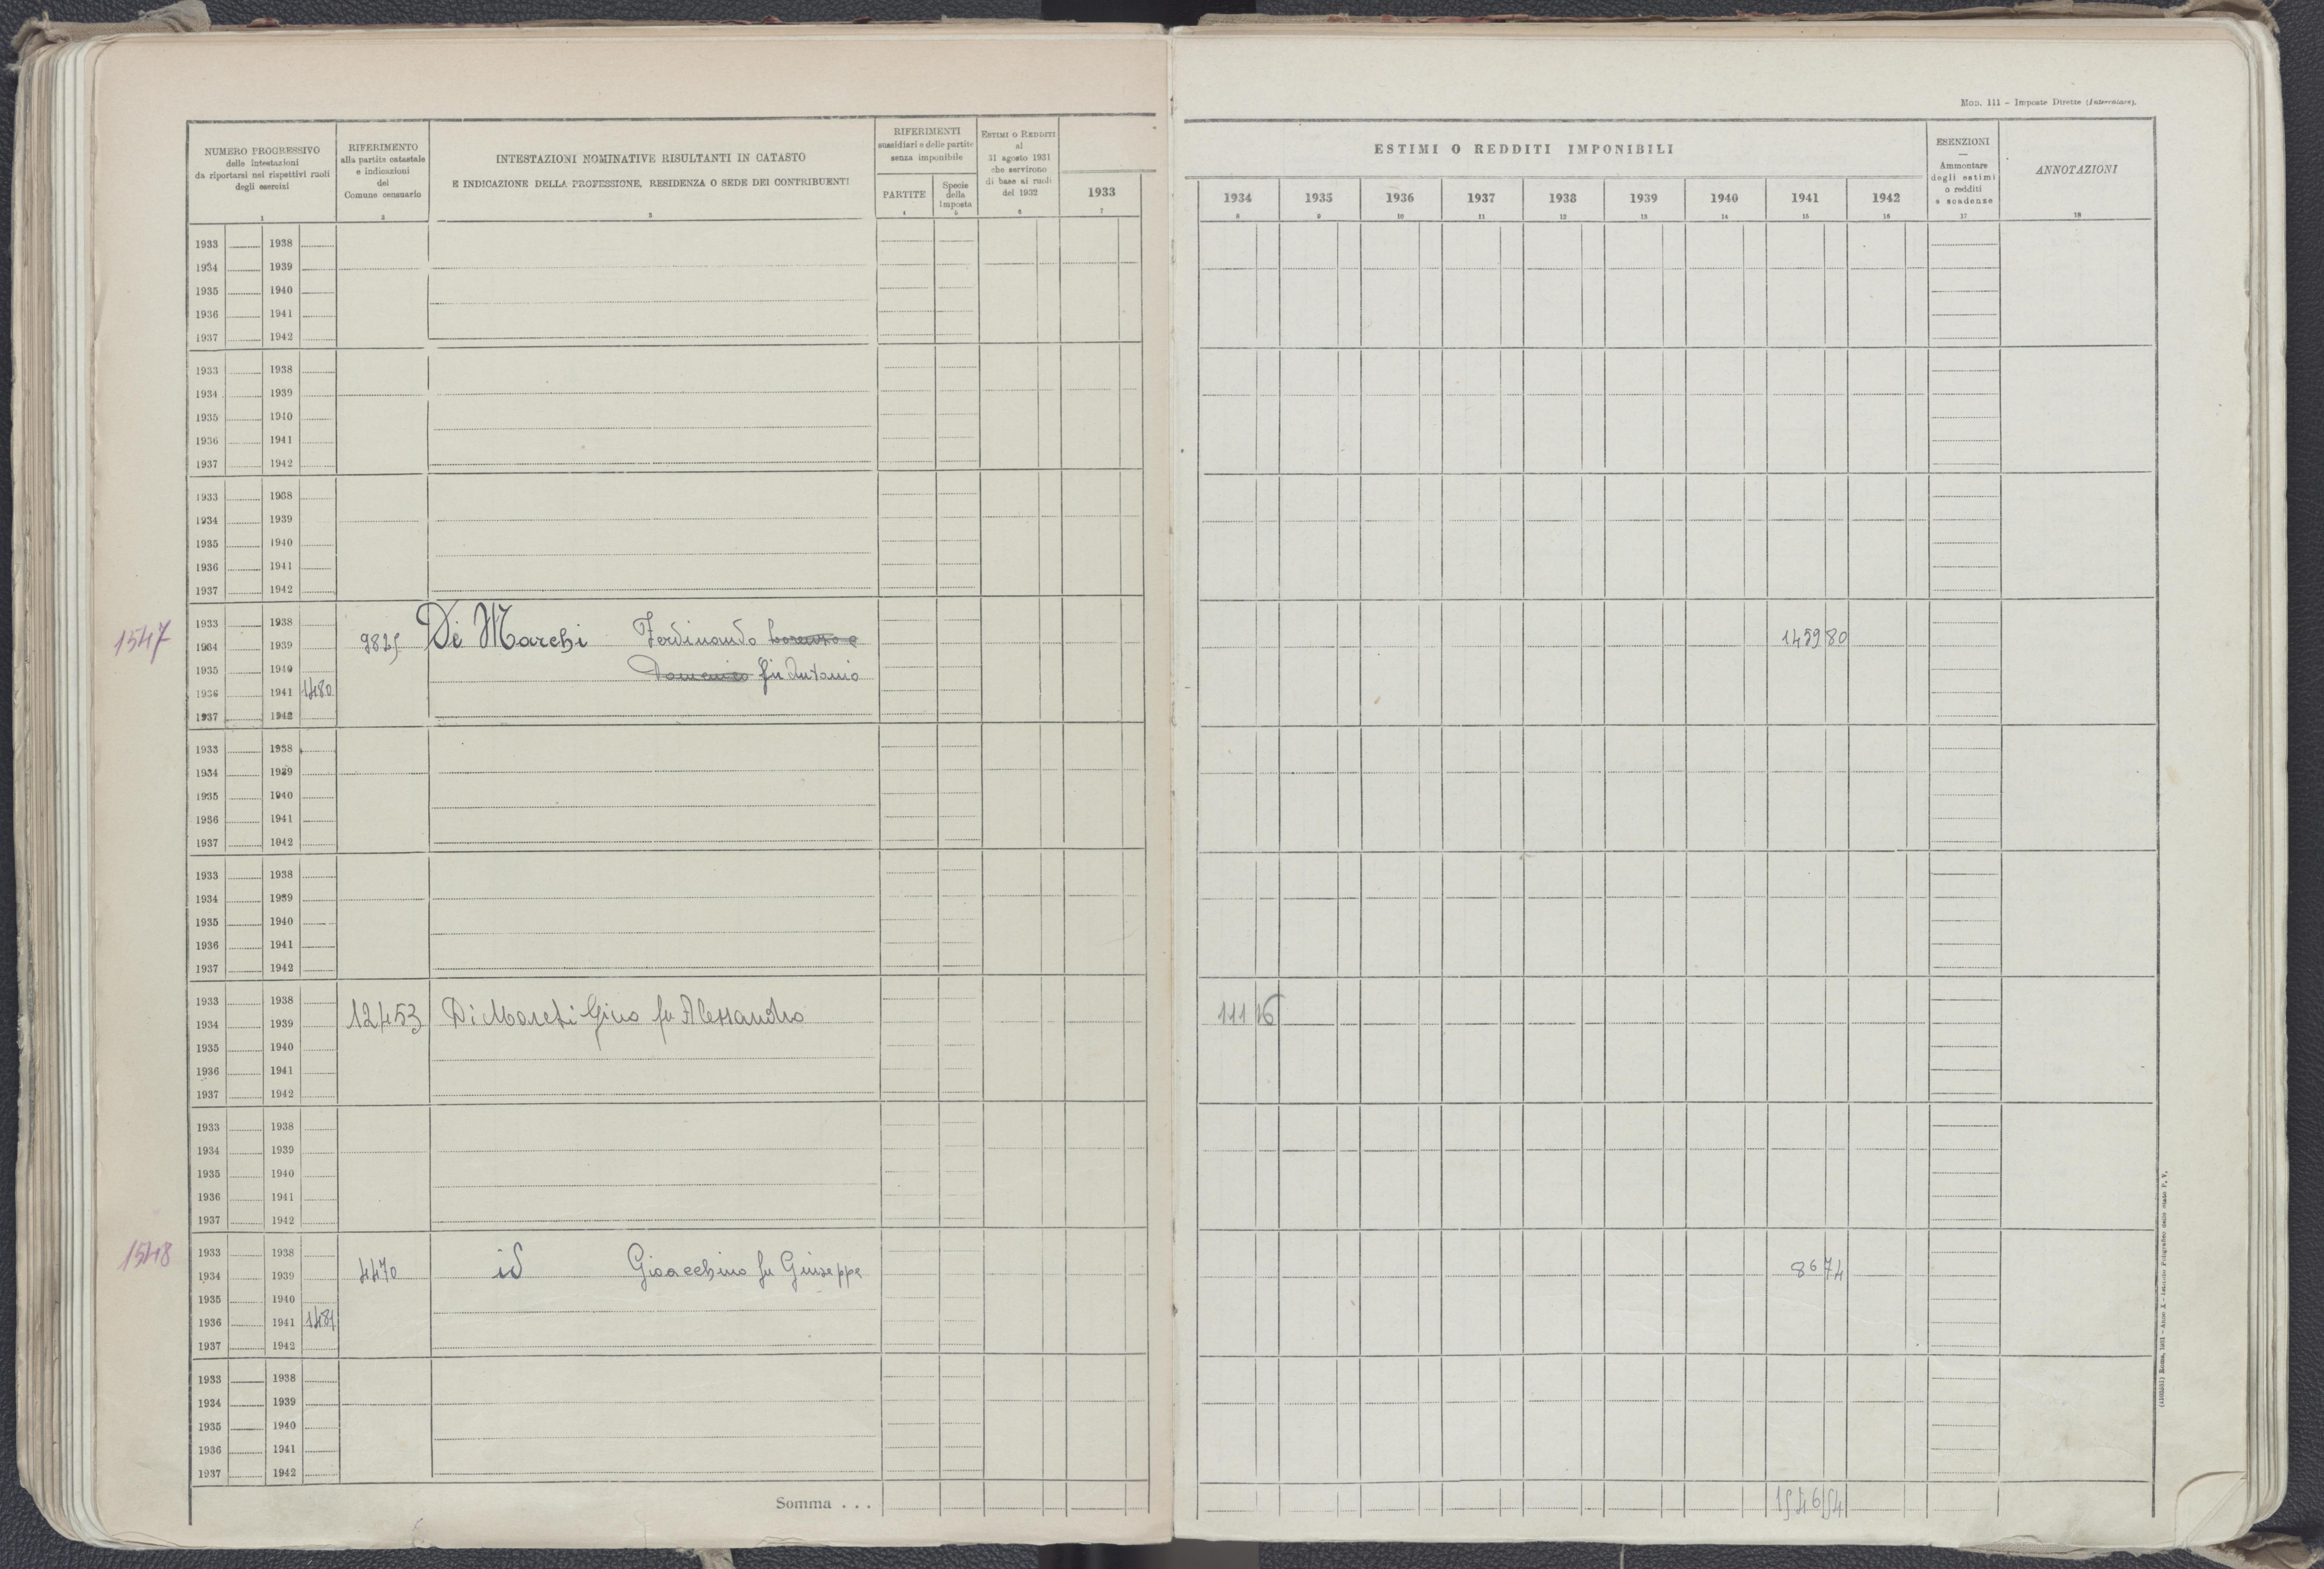 MOD. 111 – Imposte Dirette (Intercalare).
NUMERO PROGRESSIVO
delle intestazioni
da riportarsi nei rispettivi ruoli
degli esercizi
1
RIFERIMENTO
alla partita catastale
e indicazioni
del
Comune censuario
2
INTESTAZIONI NOMINATIVE RISULTANTI IN CATASTO
E INDICAZIONE DELLA PROFESSIONE, RESIDENZA O SEDE DEI CONTRIBUENTI
3
RIFERIMENTI
sussidiari e delle partite
senza imponibile
PARTITE
4
Specie
della
Imposta
5
ESTIMI O REDDITI
al
31 agosto 1931
che servirono
di base ai ruoli
del 1932
6
1933
7
ESTIMI O REDDITI IMPONIBILI
1934 1935 1936 1937 1938 1939 1940 1941 1942
8 9 10 11 12 13 14 15 16
ESENZIONI
—
Ammontare
degli estimi
o redditi
e scadenze
17
ANNOTAZIONI
18
1933 1938
1934 1939
1935 1940
1936 1941
1937 1942
1933 1938
1934 1939
1935 1940
1936 1941
1937 1942
1933 1938
1934 1939
1935 1940
1936 1941
1937 1942
1933 1938
1547 1934 1939 9825 De Marchi Ferdinando Lorenzo e 1459 80
1935 1940 Domenico fu Antonio
1936 1941 1480
1937 1942
1933 1938
1934 1939
1935 1940
1936 1941
1937 1942
1933 1938
1934 1939
1935 1940
1936 1941
1937 1942
1933 1938
1934 1939 12453 Di Marchi Gino fu Alessandro 111 16
1935 1940
1936 1941
1937 1942
1933 1938
1934 1939
1935 1940
1936 1941
1937 1942
1548 1933 1938
1934 1939 4470 id Gioacchino fu Giuseppe 86 74
1935 1940
1936 1941 1481
1937 1942
1933 1938
1934 1939
1935 1940
1936 1941
1937 1942
Somma . . . 1546 54